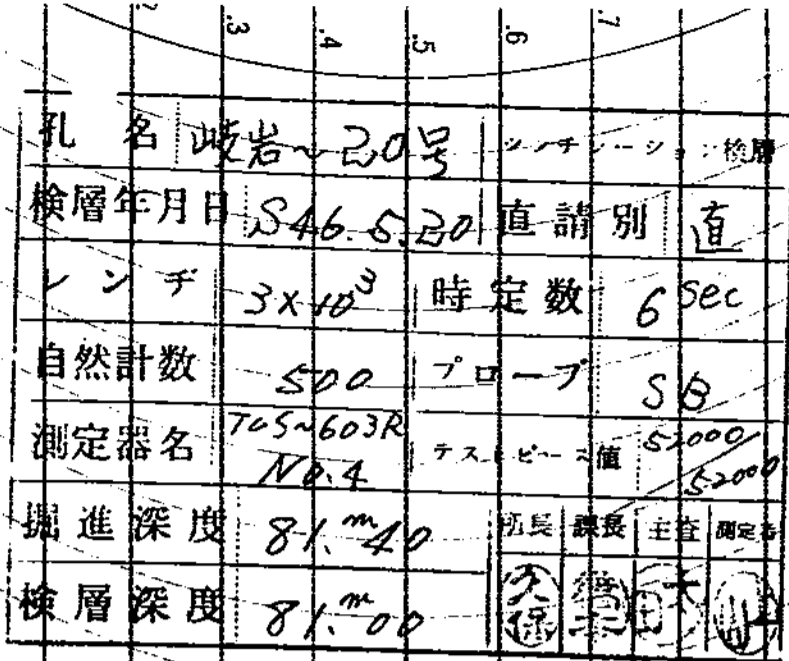 .3 .4 .5 .6 .7
孔名 岐岩~20号 シンチレーション検層
検層年月日 S46.5.20 直請別 直
レンヂ 3×10³ 時定数 6 sec
自然計数 500 プローブ SB
測定器名 TCS~603R No.4 テストピース値 52000/52000
掘進深度 81.ᵐ40 所長 課長 主査 測定者
検層深度 81.ᵐ00 久保